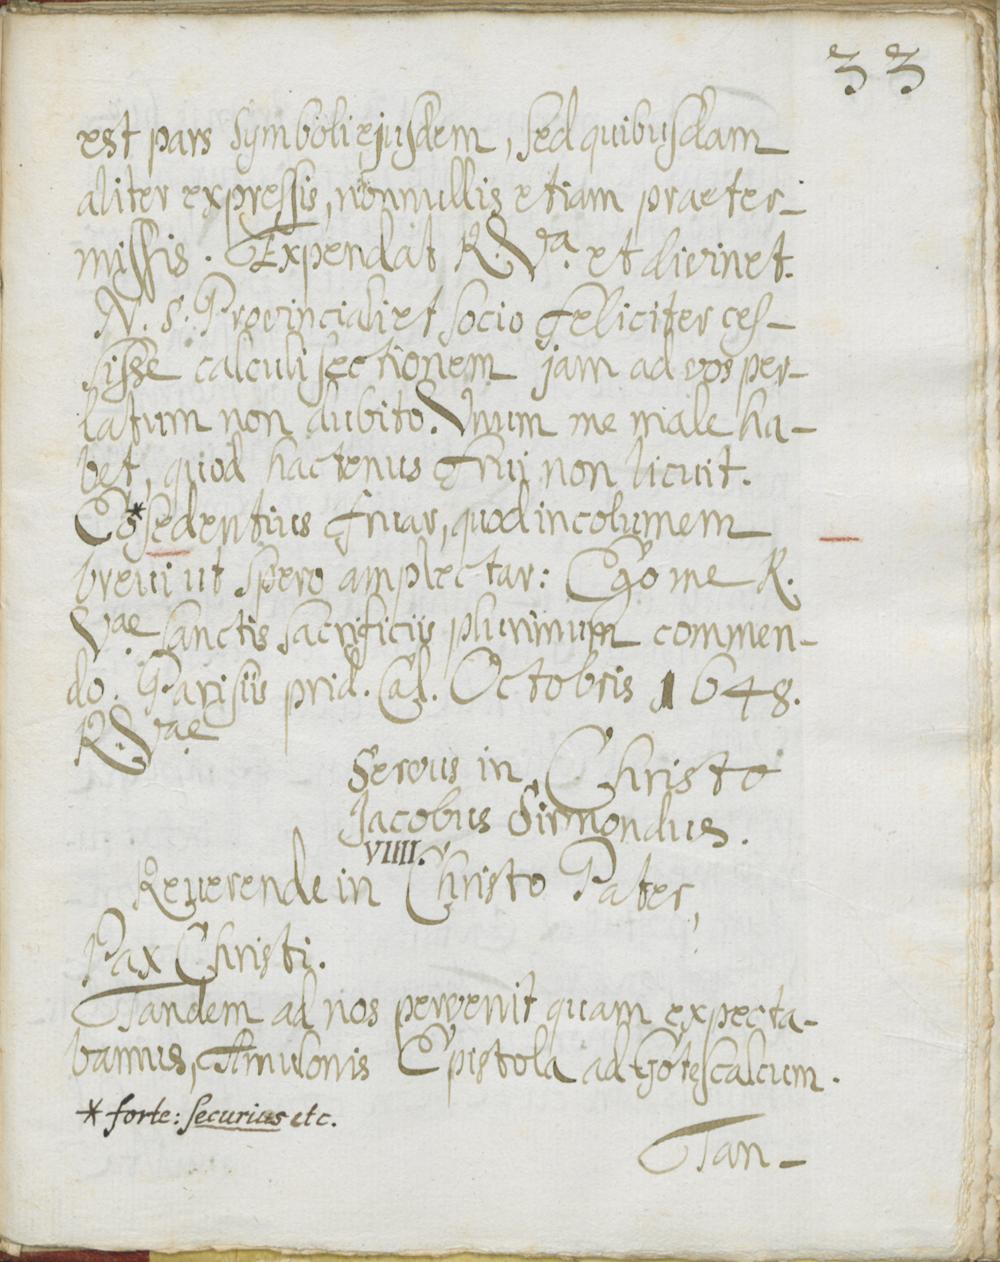 33
est pars symboli ejusdem, sed quibusdam
aliter expressis, nonnullis etiam praeter-
missis. Expendat R. Vª. et divinet.
N. S. Provinciali et socio feliciter ces-
sisse calculi sectionem jam ad vos per-
latum non dubito. Unum me male ha-
bet, quod hactenus frui non licuit.
Eo *sedentius fruar, quod incolumem
brevi ut spero amplectar: Ego me R.
Vae sanctis sacrificiis plurimum commen-
do. Parisiis prid. Cal. Octobris 1648.
R. Vae
Servus in Christo
Jacobus Sirmondus.
VIIII.
Reverende in Christo Pater,
Pax Christi.
Tandem ad nos pervenit quam expecta-
bamus, Amulonis Epistola ad Gotescalcum.
* forte: securius etc.
Tan-